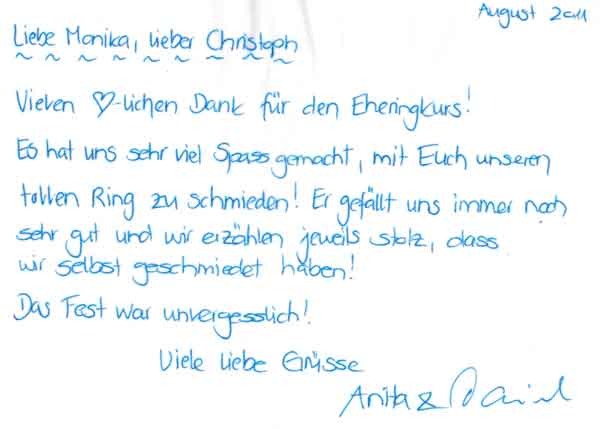 August 2011
Liebe Monika, lieber Christoph
Vielen ♡-lichen Dank für den Eheringkurs!
Es hat uns sehr viel Spass gemacht, mit Euch unseren
tollen Ring zu schmieden! Er gefällt uns immer noch
sehr gut und wir erzählen jeweils stolz, dass
wir selbst geschmiedet haben!
Das Fest war unvergesslich!
Viele liebe Grüsse
Anita & Daniel